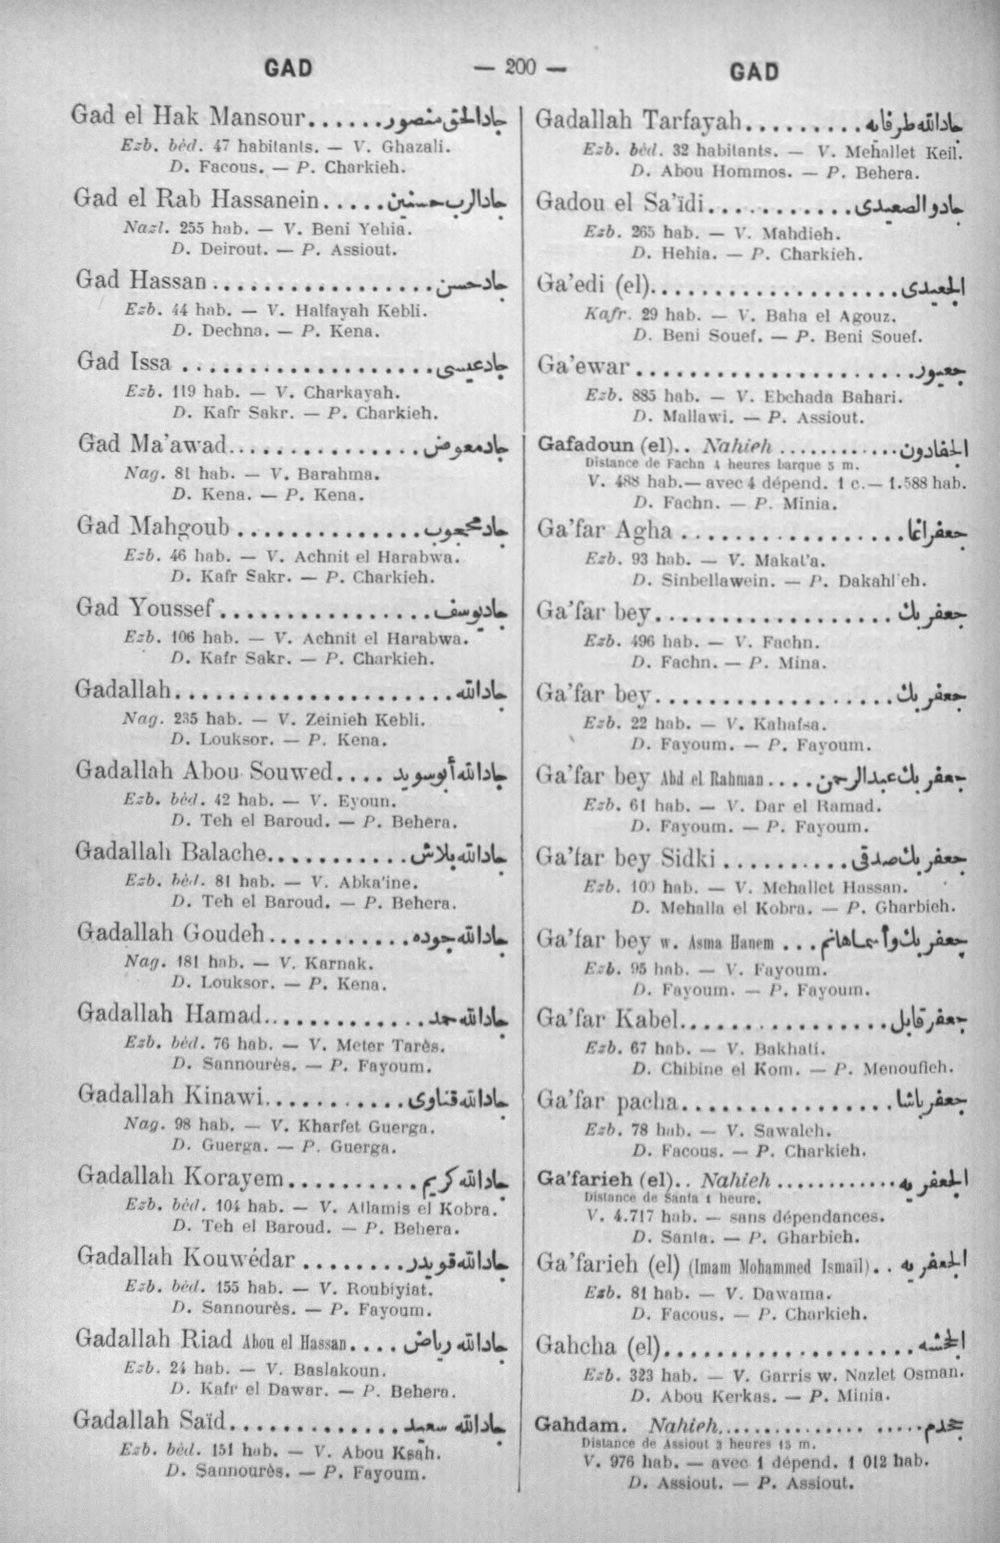 GAD — 200 — GAD
Gad el Hak Mansour......جادالحق منصور
Ezb. béd. 47 habitants. — V. Ghazali.
D. Facous. — P. Charkieh.
Gad el Rab Hassanein.....جادالرب حسنين
Nazl. 255 hab. — V. Beni Yehia.
D. Deirout. — P. Assiout.
Gad Hassan.................جادحسن
Ezb. 44 hab. — V. Halfayah Kebli.
D. Dechna. — P. Kena.
Gad Issa ...................جادعيسى
Ezb. 119 hab. — V. Charkayah.
D. Kafr Sakr. — P. Charkieh.
Gad Ma'awad................جادمعوض
Nag. 81 hab. — V. Barahma.
D. Kena. — P. Kena.
Gad Mahgoub ..............جادمحجوب
Ezb. 46 hab. — V. Achnit el Harabwa.
D. Kafr Sakr. — P. Charkieh.
Gad Youssef................جاديوسف
Ezb. 106 hab. — V. Achnit el Harabwa.
D. Kafr Sakr. — P. Charkieh.
Gadallah.....................جادالله
Nag. 235 hab. — V. Zeinieh Kebli.
D. Louksor. — P. Kena.
Gadallah Abou Souwed....جادالله أبوسويد
Ezb. béd. 42 hab. — V. Eyoun.
D. Teh el Baroud. — P. Behera.
Gadallah Balache...........جادالله بلاش
Ezb. béd. 81 hab. — V. Abka'ine.
D. Teh el Baroud. — P. Behera.
Gadallah Goudeh...........جادالله جوده
Nag. 181 hab. — V. Karnak.
D. Louksor. — P. Kena.
Gadallah Hamad............جادالله حمد
Ezb. béd. 76 hab. — V. Meter Tarès.
D. Sannourès. — P. Fayoum.
Gadallah Kinawi...........جادالله قناوى
Nag. 98 hab. — V. Kharfet Guerga.
D. Guerga. — P. Guerga.
Gadallah Korayem..........جادالله كريم
Ezb. béd. 104 hab. — V. Allamis el Kobra.
D. Teh el Baroud. — P. Behera.
Gadallah Kouwédar ........جادالله قويدر
Ezb. béd. 155 hab. — V. Roubiyiat.
D. Sannourès. — P. Fayoum.
Gadallah Riad Abou el Hassan....جادالله رياض
Ezb. 24 hab. — V. Baslakoun.
D. Kafr el Dawar. — P. Behera.
Gadallah Saïd..............جادالله سعيد
Ezb. béd. 151 hab. — V. Abou Ksah.
D. Sannourès. — P. Fayoum.
Gadallah Tarfayah.........جادالله طرفايه
Ezb. béd. 32 habitants. — V. Mehallet Keil.
D. Abou Hommos. — P. Behera.
Gadou el Sa'idi...........جادو الصعيدى
Ezb. 265 hab. — V. Mahdieh.
D. Hehia. — P. Charkieh.
Ga'edi (el)...................الجعيدى
Kafr. 29 hab. — V. Baha el Agouz.
D. Beni Souef. — P. Beni Souef.
Ga'ewar.....................جعيور
Ezb. 885 hab. — V. Ebchada Bahari.
D. Mallawi. — P. Assiout.
Gafadoun (el).. Nahieh ............الجفادون
Distance de Fachn 4 heures barque 5 m.
V. 488 hab.— avec 4 dépend. 1 c.— 1.588 hab.
D. Fachn. — P. Minia.
Ga'far Agha .................جعفراغا
Ezb. 93 hab. — V. Makal'a.
D. Sinbellawein. — P. Dakahlieh.
Ga'far bey..................جعفر بك
Ezb. 496 hab. — V. Fachn.
D. Fachn. — P. Mina.
Ga'far bey..................جعفر بك
Ezb. 22 hab. — V. Kahafsa.
D. Fayoum. — P. Fayoum.
Ga'far bey Abd el Rahman....جعفر بك عبدالرحمن
Ezb. 61 hab. — V. Dar el Ramad.
D. Fayoum. — P. Fayoum.
Ga'far bey Sidki ..........جعفر بك صدقى
Ezb. 100 hab. — V. Mehallet Hassan.
D. Mehalla el Kobra. — P. Gharbieh.
Ga'far bey w. Asma Hanem ...جعفر بك وأسماهانم
Ezb. 95 hab. — V. Fayoum.
D. Fayoum. — P. Fayoum.
Ga'far Kabel................جعفر قابل
Ezb. 67 hab. — V. Bakhati.
D. Chibine el Kom. — P. Menoufieh.
Ga'far pacha................جعفر باشا
Ezb. 78 hab. — V. Sawaleh.
D. Facous. — P. Charkieh.
Ga'farieh (el).. Nahieh ............الجعفريه
Distance de Santa 1 heure.
V. 4.717 hab. — sans dépendances.
D. Santa. — P. Gharbieh.
Ga'farieh (el) (Imam Mohammed Ismail)..الجعفريه
Ezb. 81 hab. — V. Dawama.
D. Facous. — P. Charkieh.
Gahcha (el)..................الجحشه
Ezb. 323 hab. — V. Garris w. Nazlet Osman.
D. Abou Kerkas. — P. Minia.
Gahdam. Nahieh...................جحدم
Distance de Assiout 3 heures 15 m.
V. 976 hab. — avec 1 dépend. 1 012 hab.
D. Assiout. — P. Assiout.